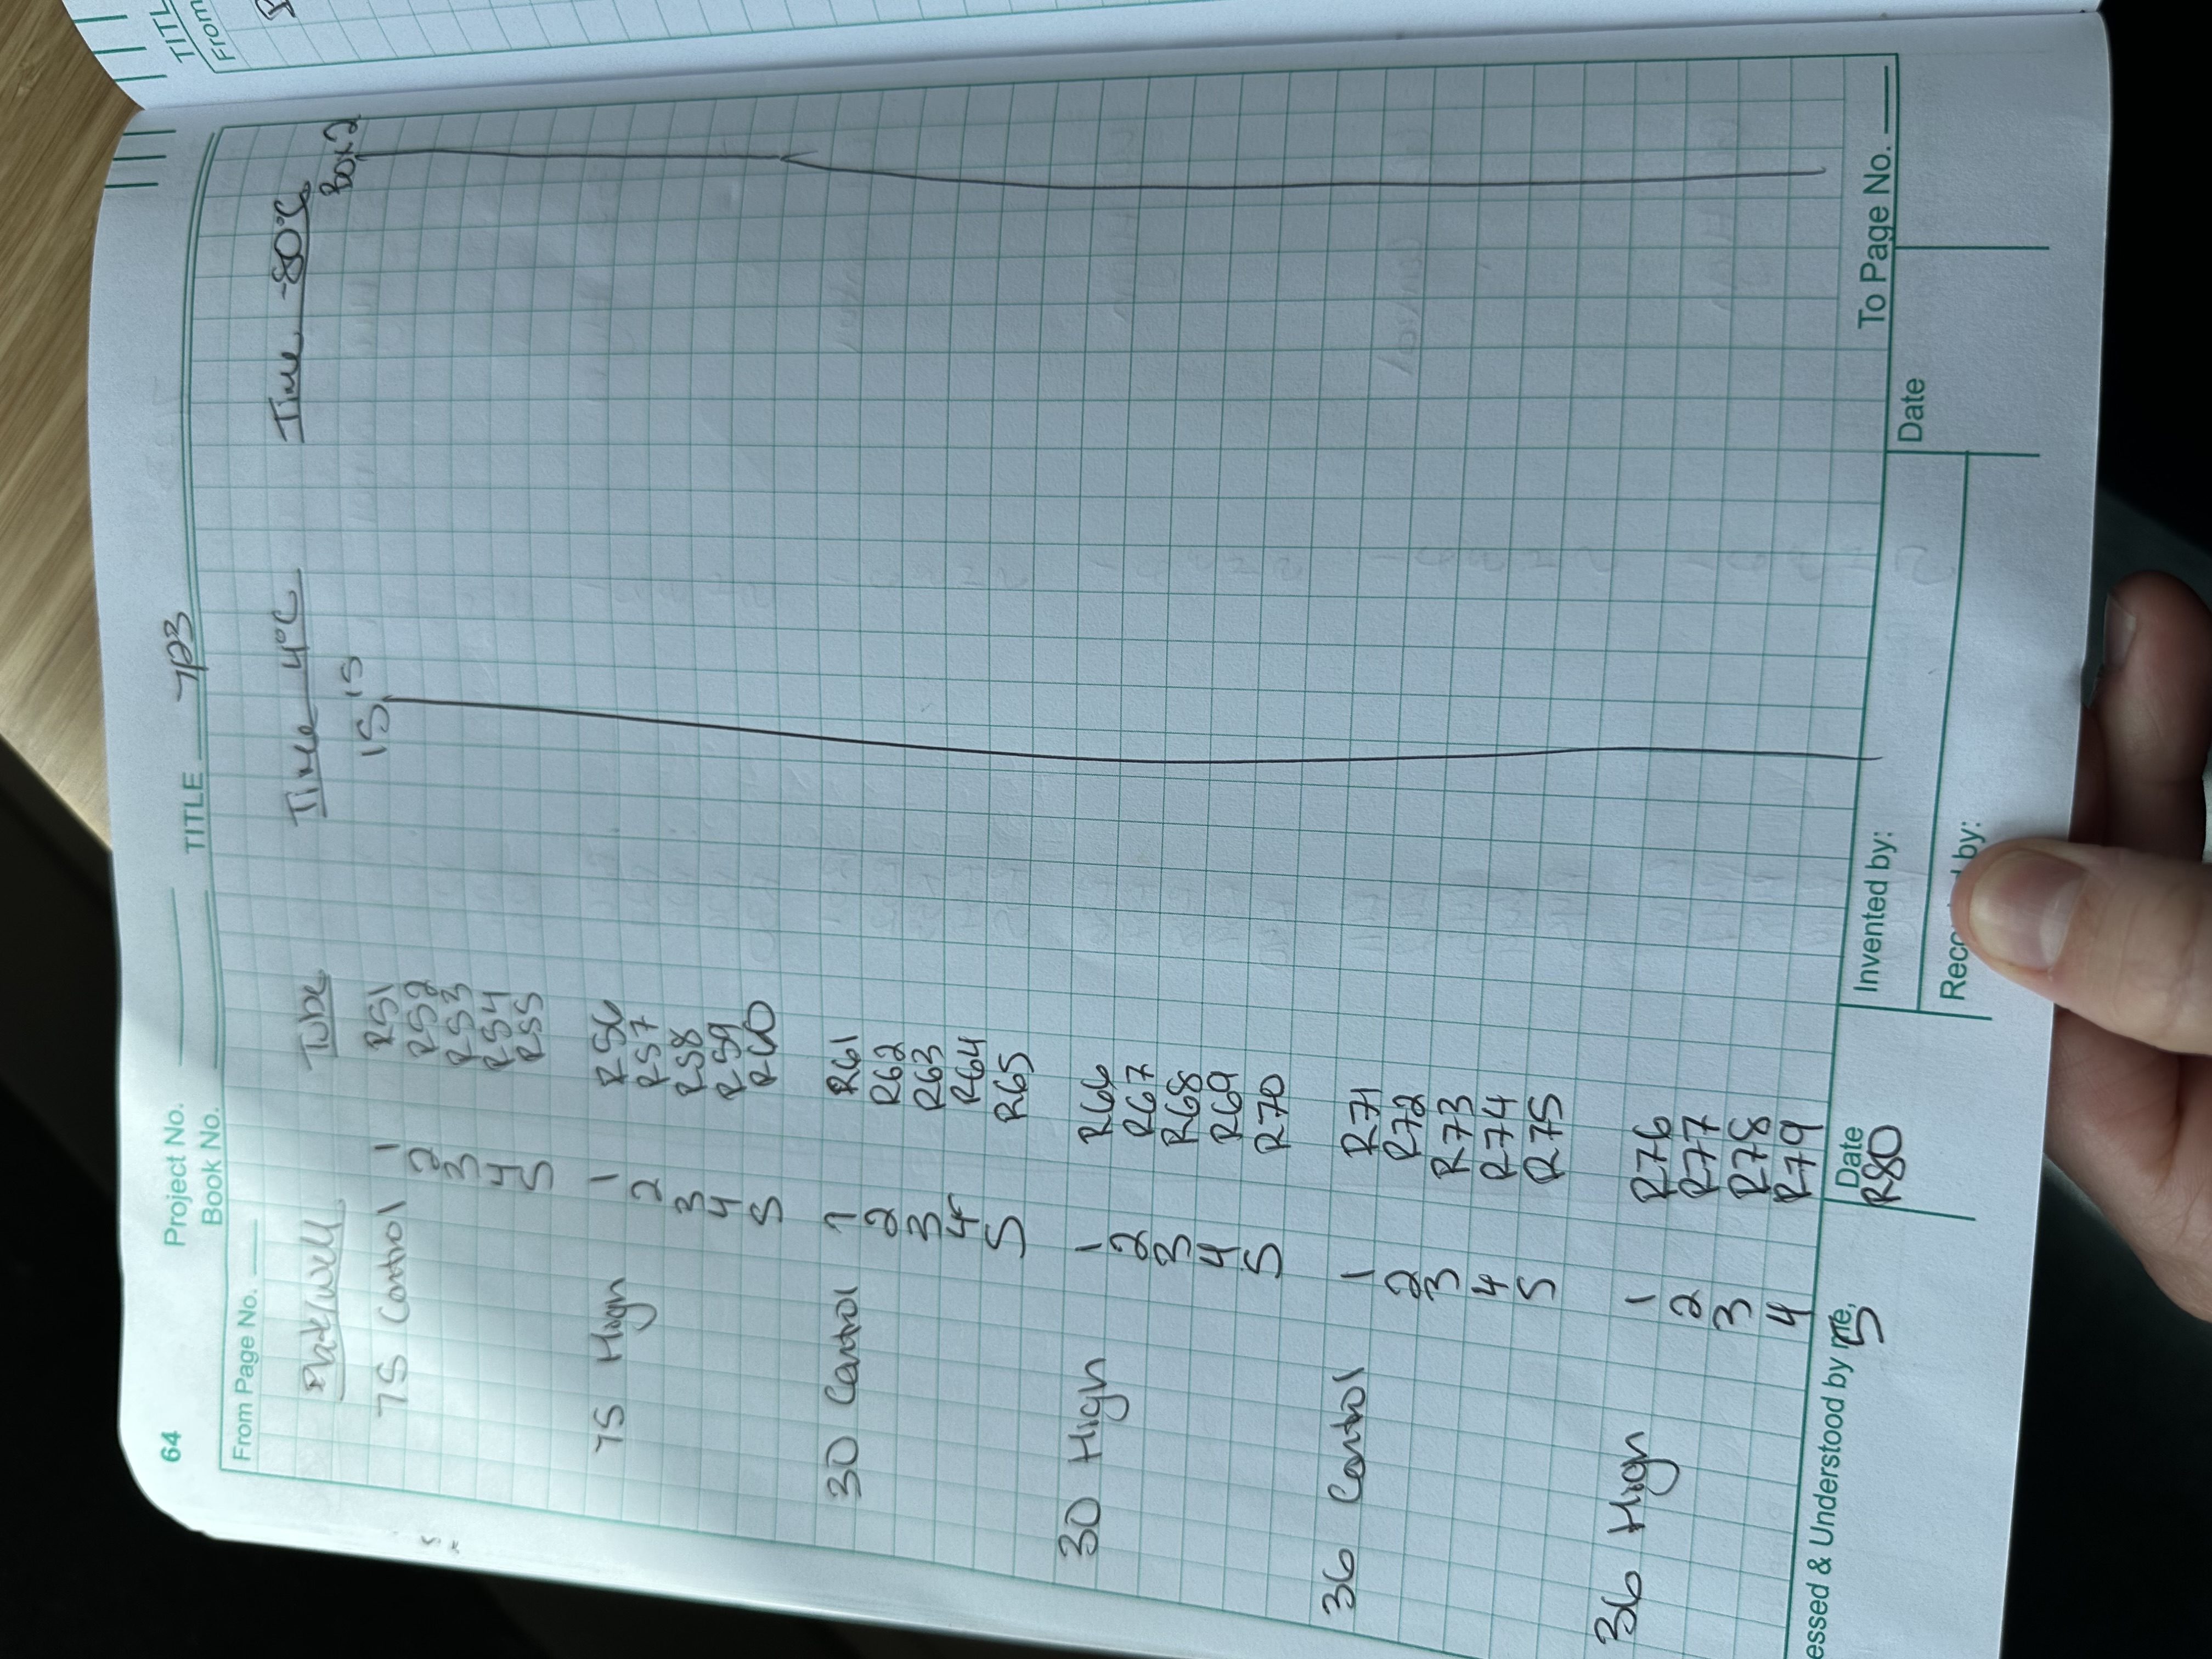 64
Project No.
Book No.
TITLE TP3
From Page No.
Plate/Well Tube Time 4°C Time -80°C
Box 2
75 Control 1 R51 15 15
2 R52
3 R53
4 R54
5 R55
75 High 1 R56
2 R57
3 R58
4 R59
5 R60
30 Control 1 R61
2 R62
3 R63
4 R64
5 R65
30 High 1 R66
2 R67
3 R68
4 R69
5 R70
36 Control 1 R71
2 R72
3 R73
4 R74
5 R75
36 High 1 R76
2 R77
3 R78
4 R79
essed & Understood by me,
5
Date
R80
Invented by:
To Page No.
Date
by:
TITL
From